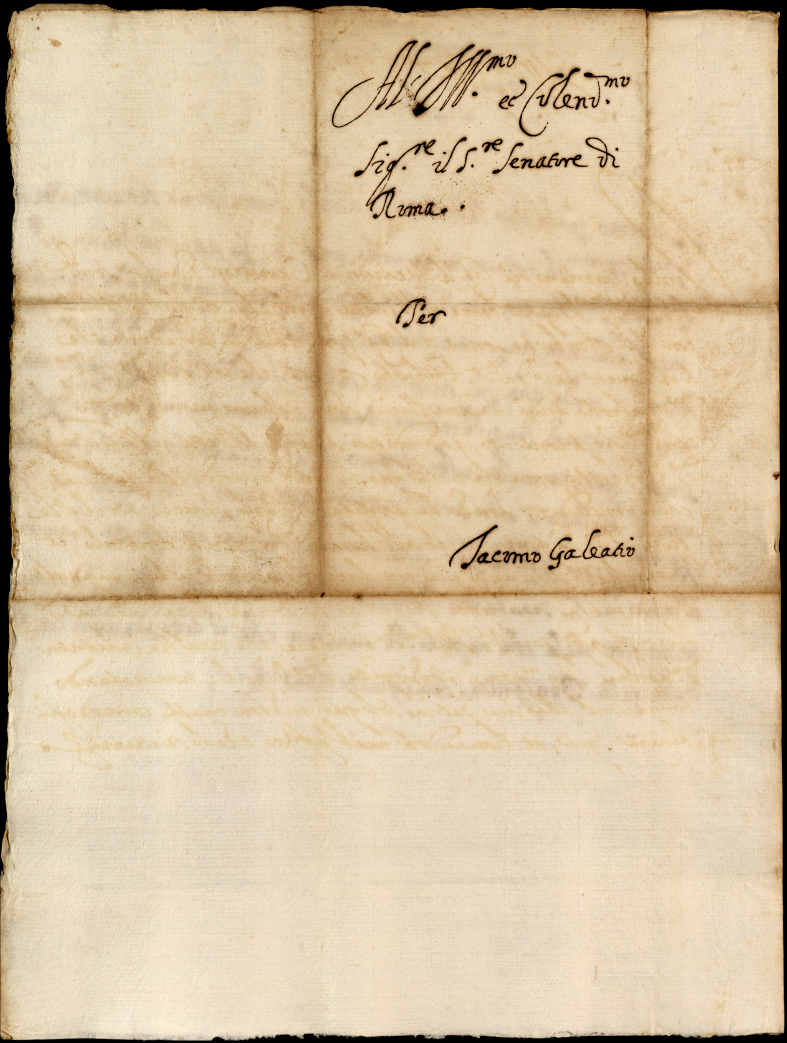 Al' Ill.mo et Colend.mo
Sig.re il S.re Senatore di
Roma.
Per
Jacomo Galeatio